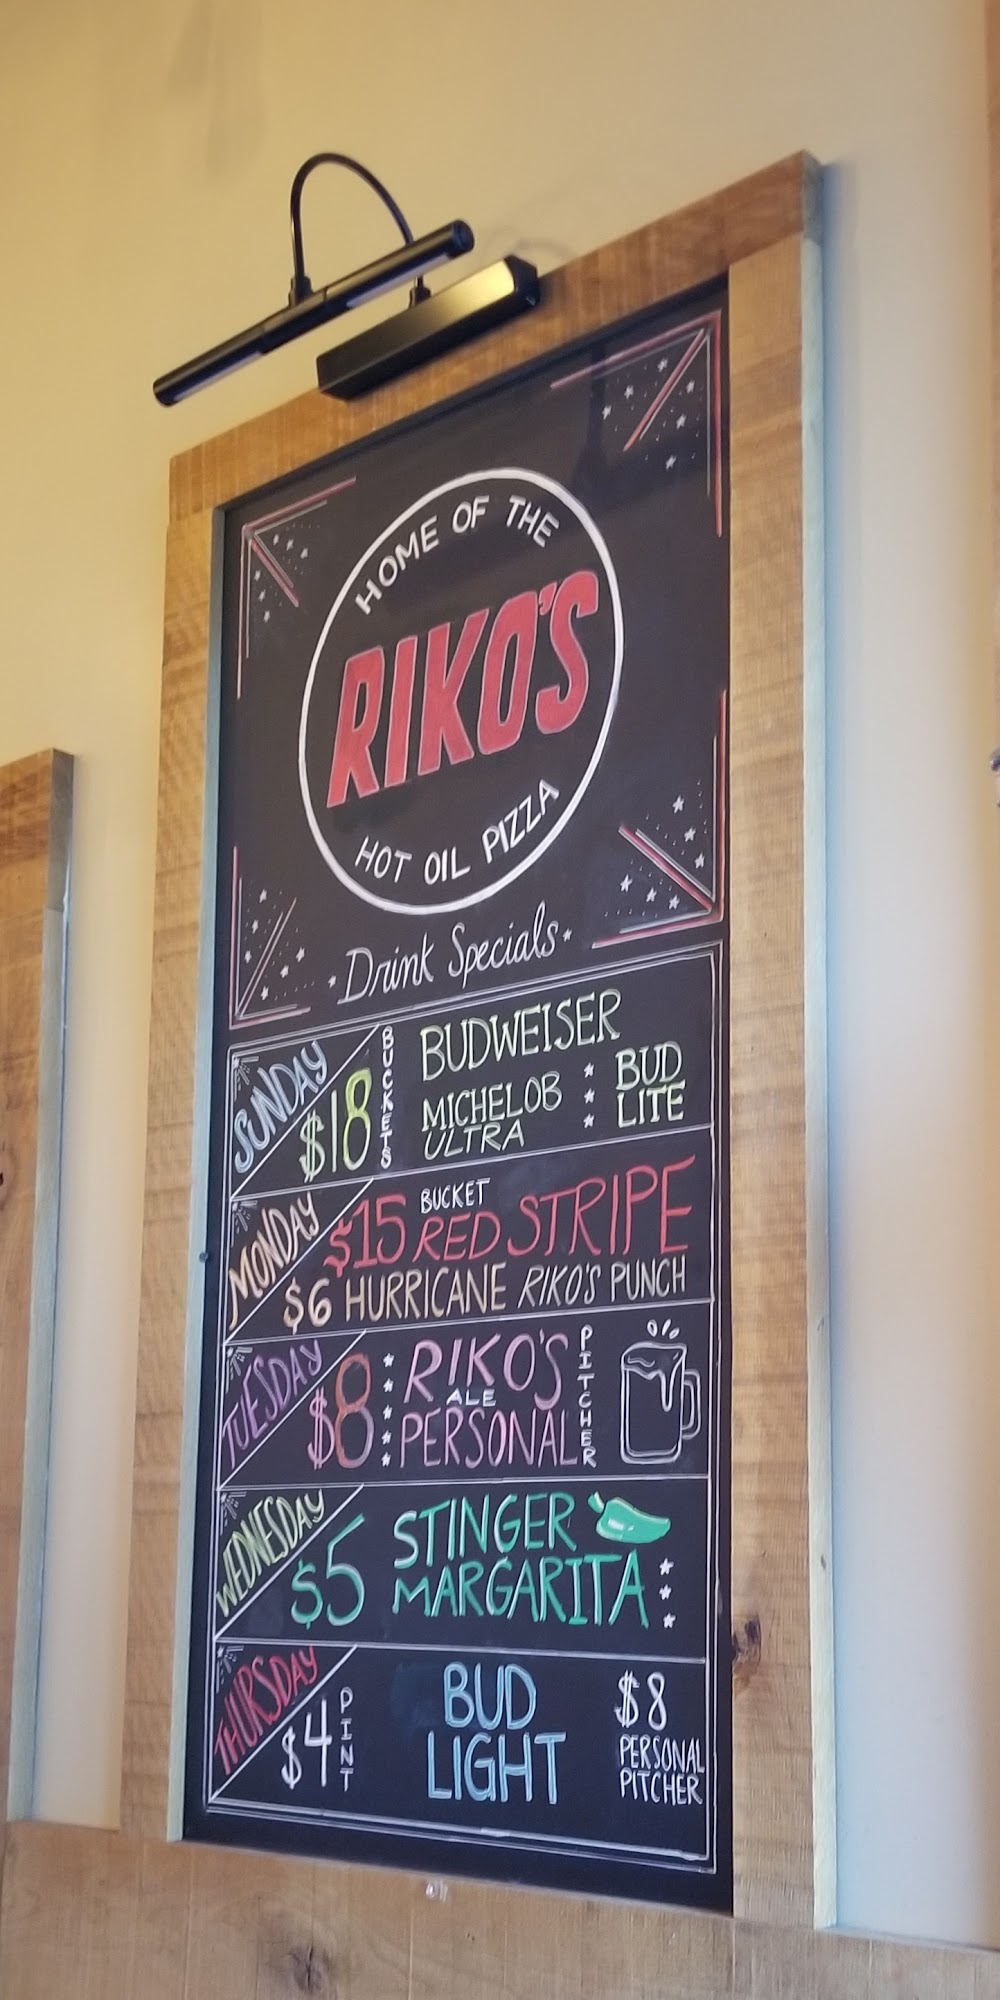 HOME OF THE
RIKO'S
HOT OIL PIZZA
Drink Specials
SUNDAY
$18
BUCKETS
BUDWEISER
MICHELOB
ULTRA
BUD
LITE
MONDAY
$15 BUCKET RED STRIPE
$6 HURRICANE RIKO'S PUNCH
TUESDAY
$8
RIKO'S
ALE
PERSONAL
PITCHER
WEDNESDAY
$5
STINGER
MARGARITA
THURSDAY
$4
PINT
BUD
LIGHT
$8
PERSONAL
PITCHER